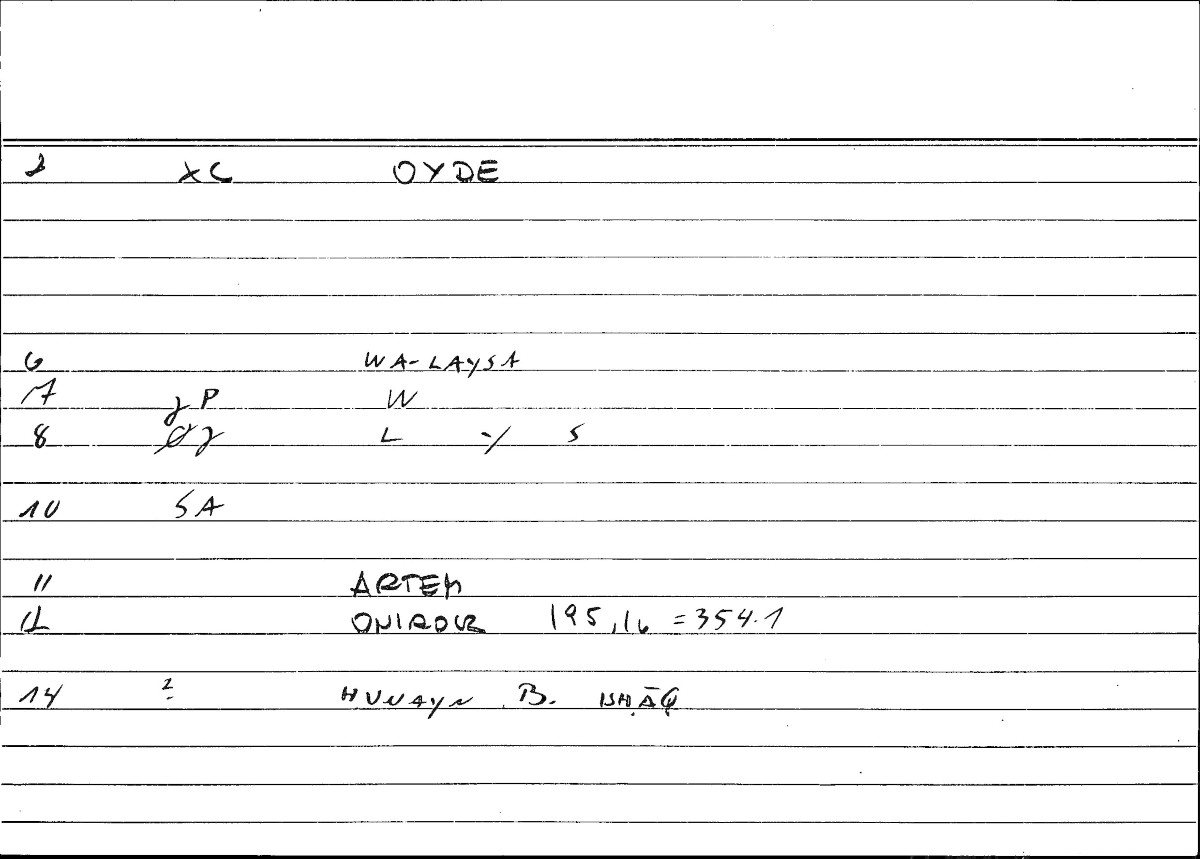 1 XC OYDE
6 WA-LAYSA
7 gP W
8 L -/ S
10 SA
11 ARTEM
12 ONIROCR 195,16 = 354.1
14 2 HUNAYN B. ISḤĀQ